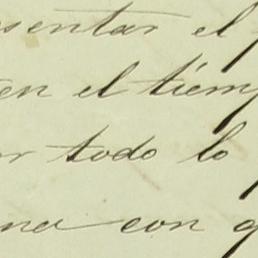 sentar el
en el tiem
or todo lo
na con q